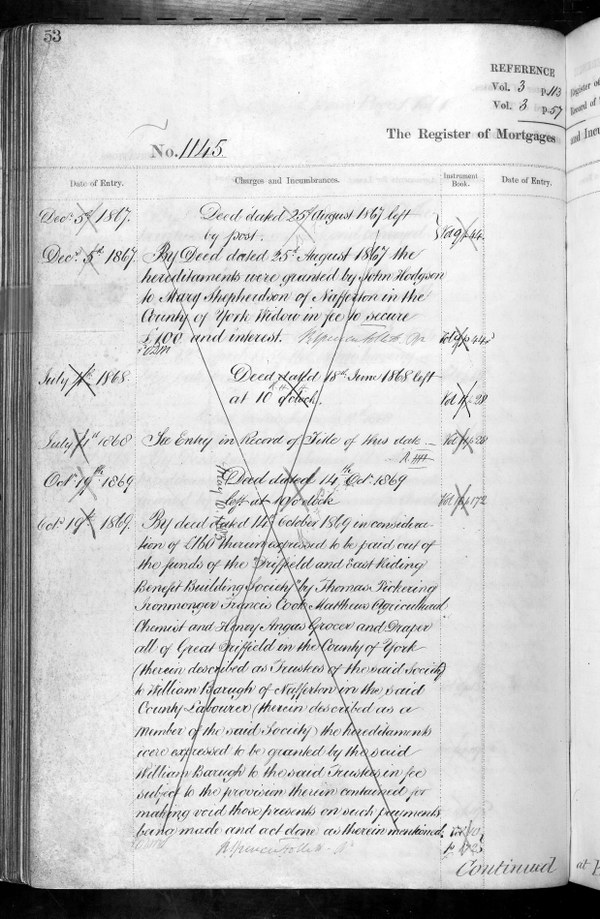 53
REFERENCE
Vol. 3 p. 113
Vol. 3 p. 57
No. 1145.
The Register of Mortgages
and Incu
Date of Entry. Charges and Incumbrances. Instrument Book. Date of Entry.
Decr. 5th 1867. Deed dated 25th August 1867 left
by post. Vol 9 p 44
Decr. 5th 1867. By Deed dated 25th August 1867 the
hereditaments were granted by John Hodgson
to Mary Shepherdson of Nafferton in the
County of York Widow in fee to secure
£100 and interest. Vol 9 p 44
July 1868. Deed dated 18th June 1868 left
at 10 o'clock. Vol 28
July 1st 1868 See Entry in Record of Title of this date — Vol 28
Octr. 19th 1869 Deed dated 14th Octr. 1869
left at 10 o'clock Vol 172
Octr. 19th 1869. By deed dated 14th October 1869 in considera-
tion of £160 therein expressed to be paid out of
the funds of the "Driffield and East Riding
Benefit Building Society" by Thomas Pickering
Ironmonger Francis Cook Matthews Agricultural
Chemist and Henry Angas Grocer and Draper
all of Great Driffield in the County of York
(therein described as Trustees of the said Society)
to William Barugh of Nafferton in the said
County Labourer (therein described as a
Member of the said Society) the hereditaments
were expressed to be granted by the said
William Barugh to the said Trustees in fee
subject to the provision therein contained for
making void those presents on such payments
being made and act done as therein mentioned.
p 172
Continued